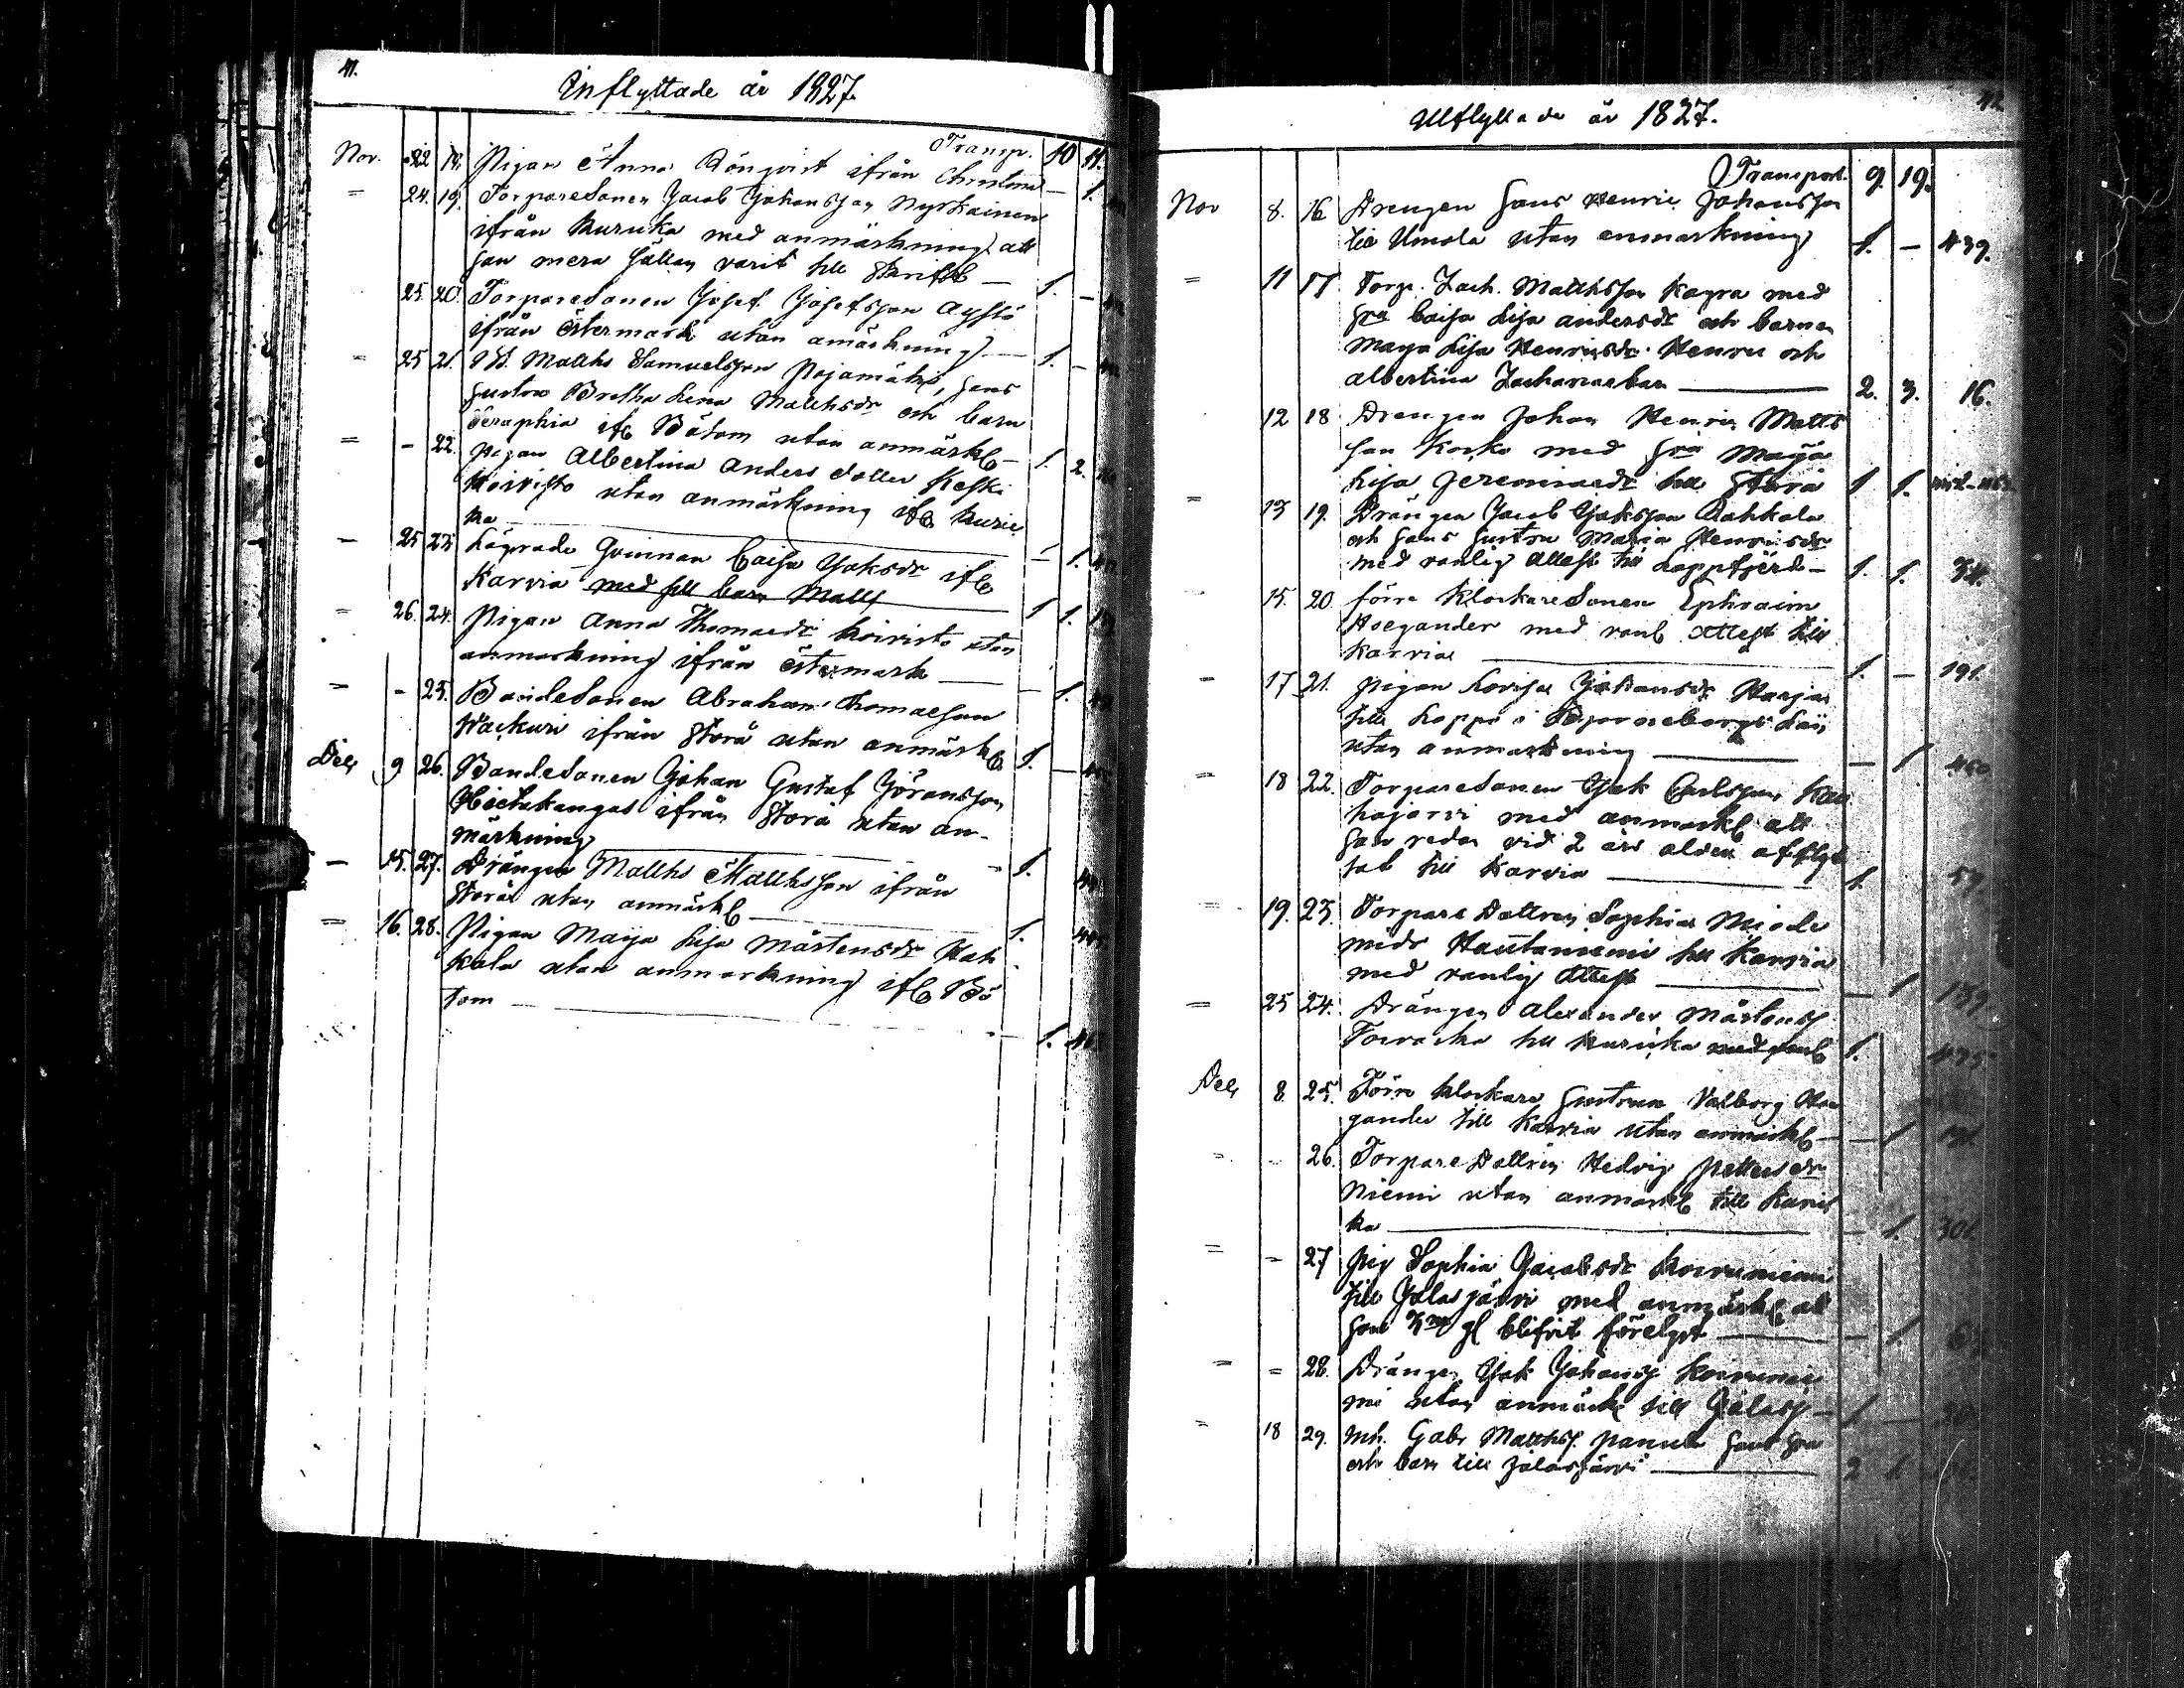 41.
Inflyttade år 1827.
Transp. 10 11.
Nov. 22 18. Pigan Anna Rönqvist ifrån Christina — 1.
= 24. 19. Torparesonen Jacob Johansson Myrkainen
ifrån Kuricka med anmärkning att
han mera sällan varit till Skriftb — 1. —
25. 20. Torparesonen Josef Josefsson Aystö
ifrån Östermark utan anmärkning — 1. —
= 25 21. Matths Samuelsson Pojamäki, hans
hustru Bretha Lena Matthsdr och barn
Seraphia ifr Bötom utan anmärk — 1. 2.
= - 22. Pigan Albertina Anders dotter Keski
Koivisto utan anmärkning ifr Kuric
ka — — 1.
— 25 23. Lägrade Qvinnan Caisa Jaksdr ifr
Karvia med sitt barn Matts 1 1.
= 26. 24. Pigan Anna Thomaedr Koivisto utan
anmärkning ifrån Östermark — — 1.
= - 25. Bondesonen Abraham Thomaesson
ifrån Storå utan anmärk 1. —
Dec 9 26. Bondesonen Johan Gustaf Jöransson
Hietakangas ifrån Storå utan an-
märkning — 1.
— 15. 27. Drängen Matths Matthsson ifrån
Storå utan anmärk — 1.
= 16. 28. Pigan Maja Lisa Mårtensdr Kah
kola utan anmärkning ifr Bö
tom — — 1.
42
Utflyttade år 1827.
Transport. 9. 19.
Nov 8. 16 Drengen Hans Henric Johansson
till Umola utan anmärkning 1. — 439.
= 11 17 Torp. Zach. Matthsson Kagra med
hru Caisa Lisa Andersdr och barnen
Maja Lisa Henricsdr Henric och
Albertina Zachariaebarn — 2. 3. 16.
12 18 Drengen Johan Henric Matts
son Korko med hru Maja
Lisa Jeremiaedr till Storå 1 1.
= 13 19. Drängen Jacob Jaksson Rahkola
och hans hustru Maria Henricsdr
med vanlig attest till Lappfjärd — 1. 1. 34.
15. 20. förre Klockaresonen Ephraim
Hoegander med vanl attest till
Karvia — 1. — 191.
= 17 21. Pigan Lovisa Johansdr Harja
till Lappo i Björneborgs Län
utan anmärkning — — 1 450
= 18 22. Torparesonen Jak Carlsson Kau
hajarvi med anmärk att
han redan vid 2 års ålder afflyt
tat till Karvia — 1. 59.
= 19. 23 Torpare Dottren Sophia
Hautaniemi till Karvia
med vanlig attest — — 1 139.
= 25 24. Drängen Alexander Mårtenss
till Kuricka med vanl 1. 475.
Dec 8. 25. Förre klockare hustrun Valborg Hoe
gander till Karvia utan anmärk — — 1
= - 26. Torpare Dottren Hedvig Pettersdr
Niemi utan anmärk till Kuric
ka — — 1. 301.
= - 27 Pig Sophia Jacobsdr Koivuniemi
till Jalasjärvi med anmärk att
hon gl blifvit förelyst — — 1.
= = 28. Drängen Jak Johanss Koivunie
mi utan anmärk till Jalasj — 1. —
= 18 29. Mh. Gabr Matthss. Panula hans hru
och barn till Jalasjärvi — 2 1.